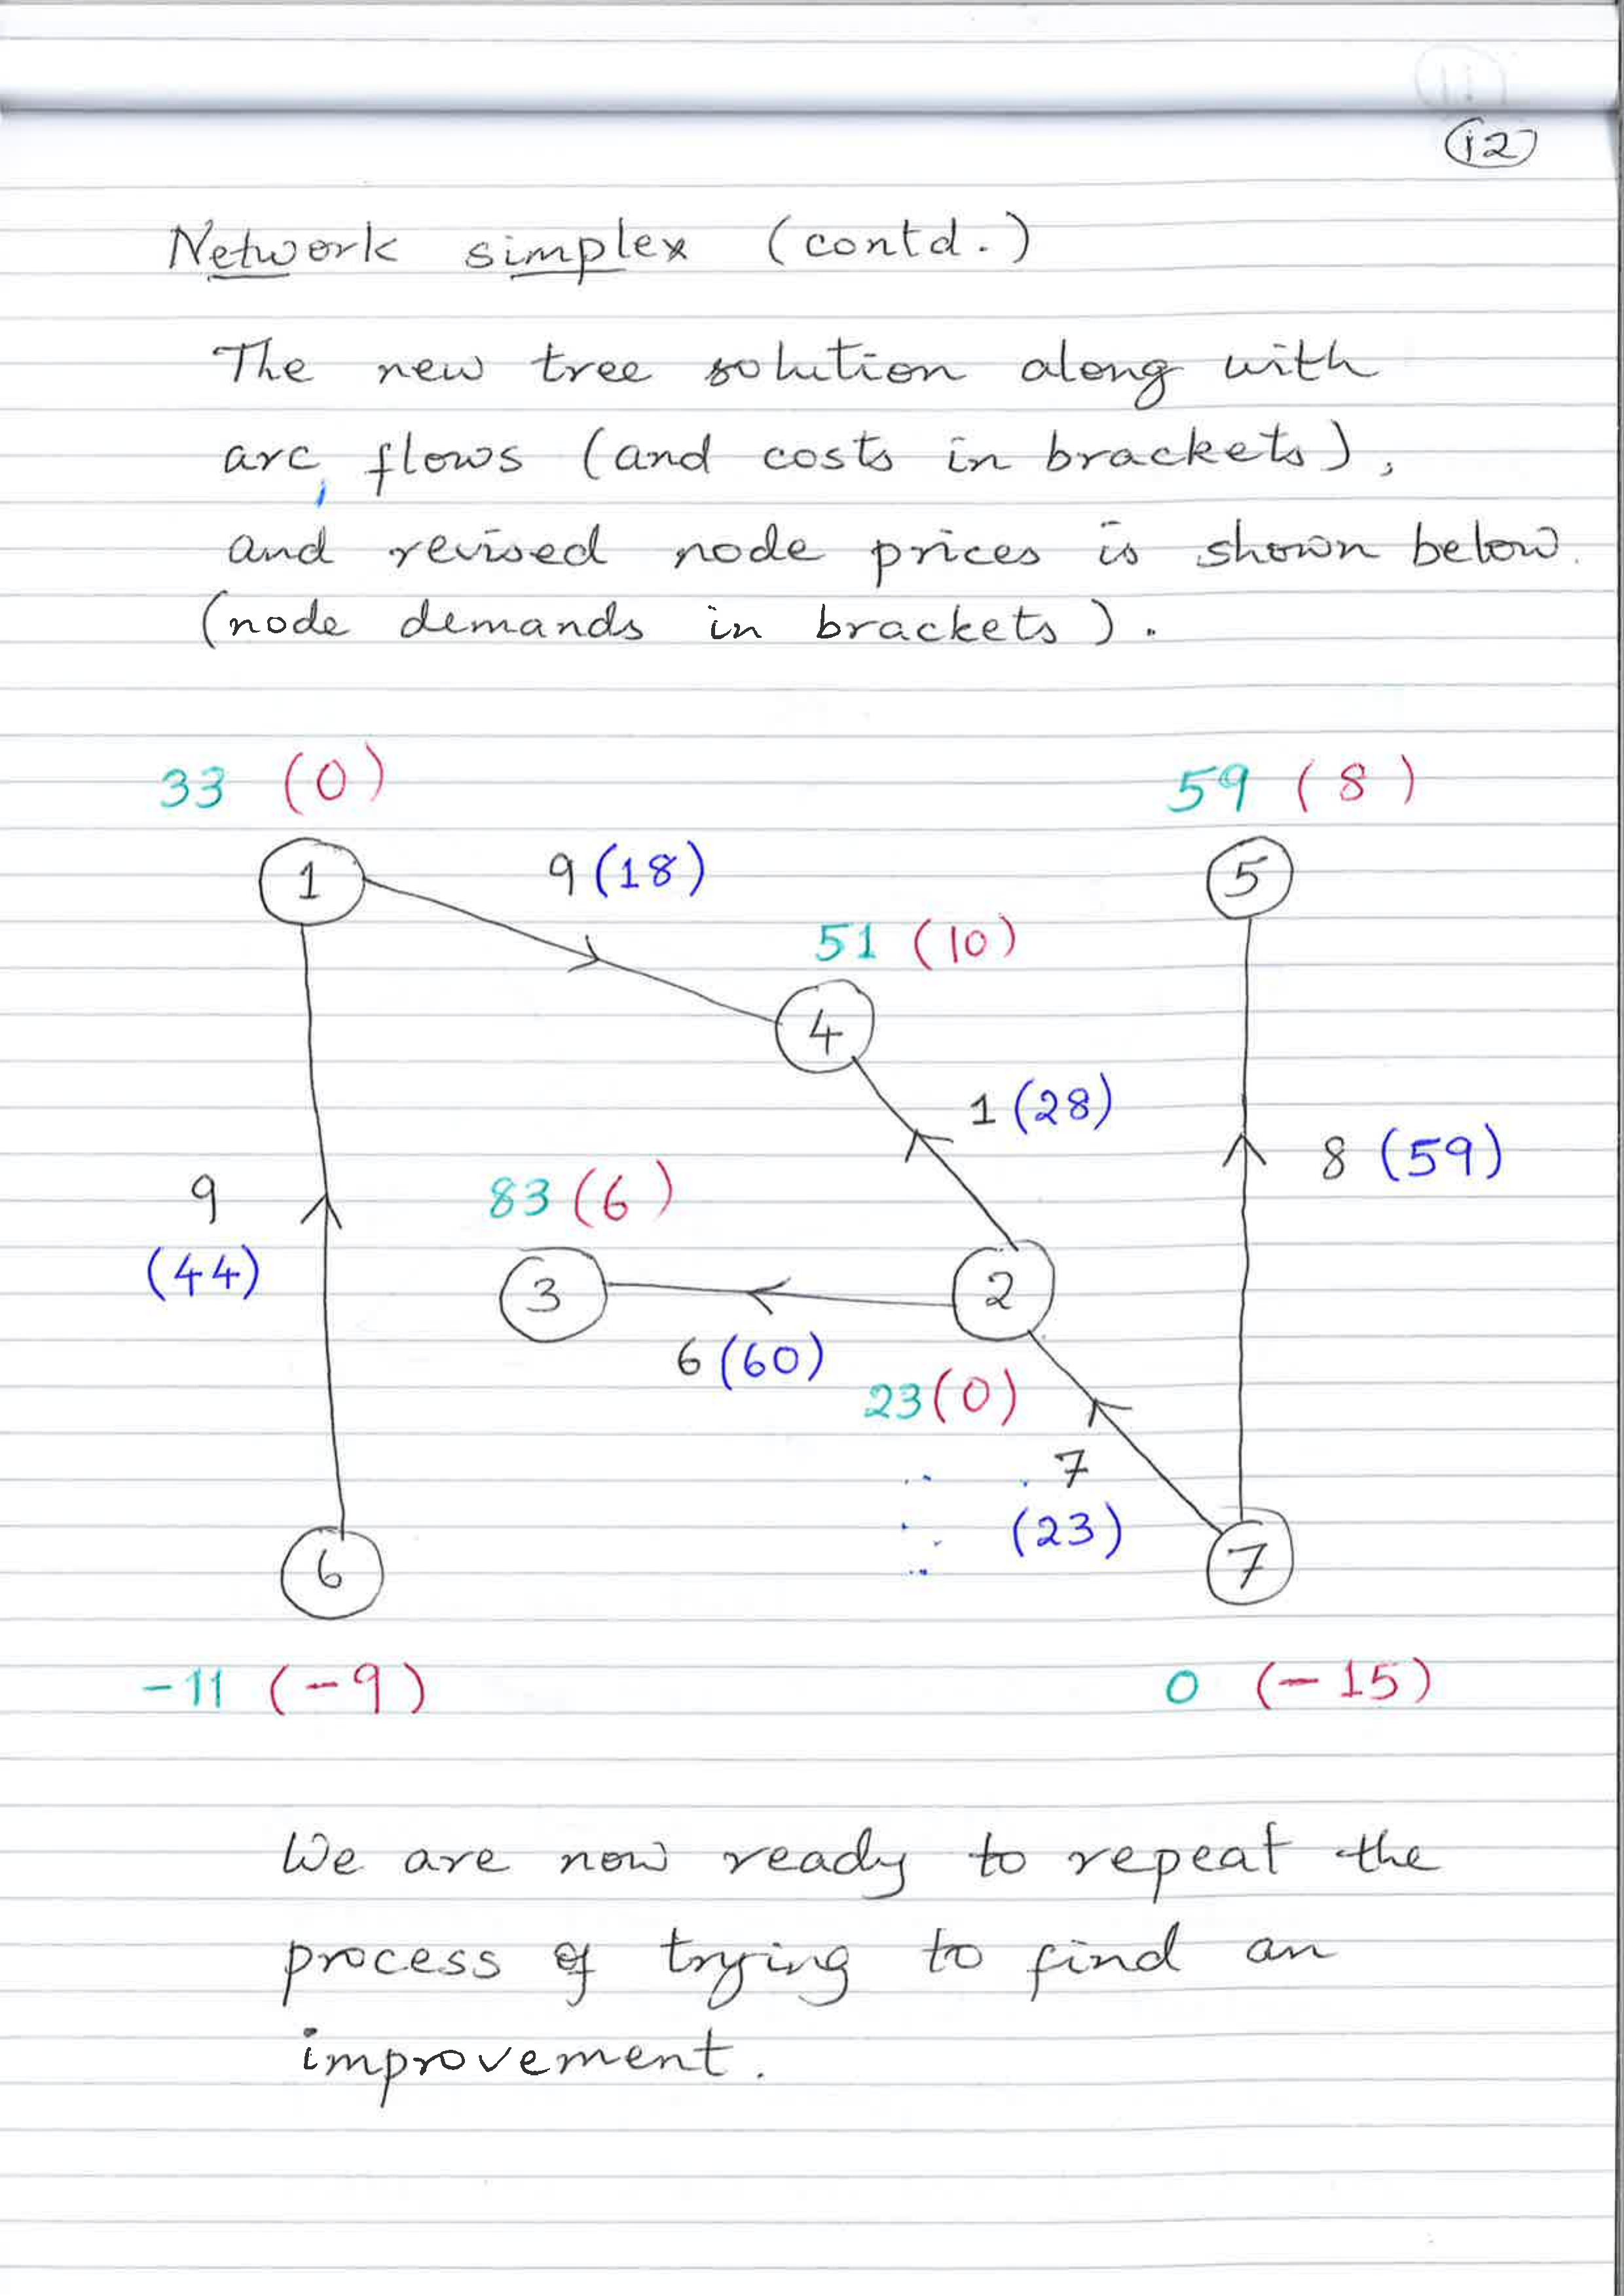 12
Network simplex (contd.)
The new tree solution along with
arc, flows (and costs in brackets),
and revised node prices is shown below.
(node demands in brackets).
33 (0)
59 (8)
1
9 (18)
5
51 (10)
4
1 (28)
8 (59)
9
(44)
83 (6)
3
2
6 (60)
23 (0)
7
(23)
6
7
-11 (-9)
0 (-15)
We are now ready to repeat the
process of trying to find an
improvement.